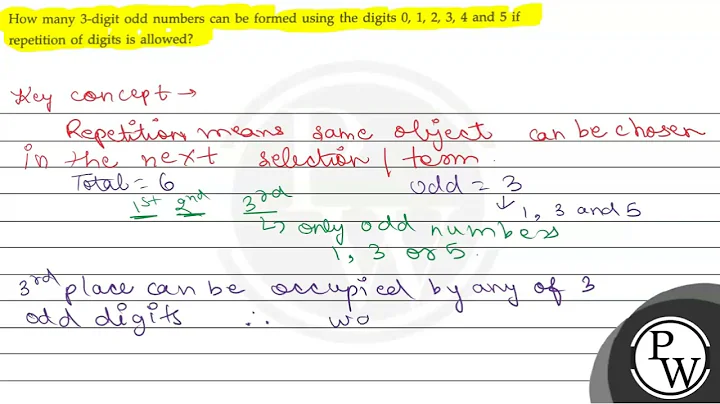 How many 3-digit odd numbers can be formed using the digits 0, 1, 2, 3, 4 and 5 if
repetition of digits is allowed?
Key concept →
Repetition means same object can be chosen
in the next selection / term.
Total = 6 odd = 3
1st 2nd 3rd ↓ 1, 3 and 5
↳ only odd numbers
1, 3 or 5.
3rd place can be occupied by any of 3
odd digits ∴ wa
PW